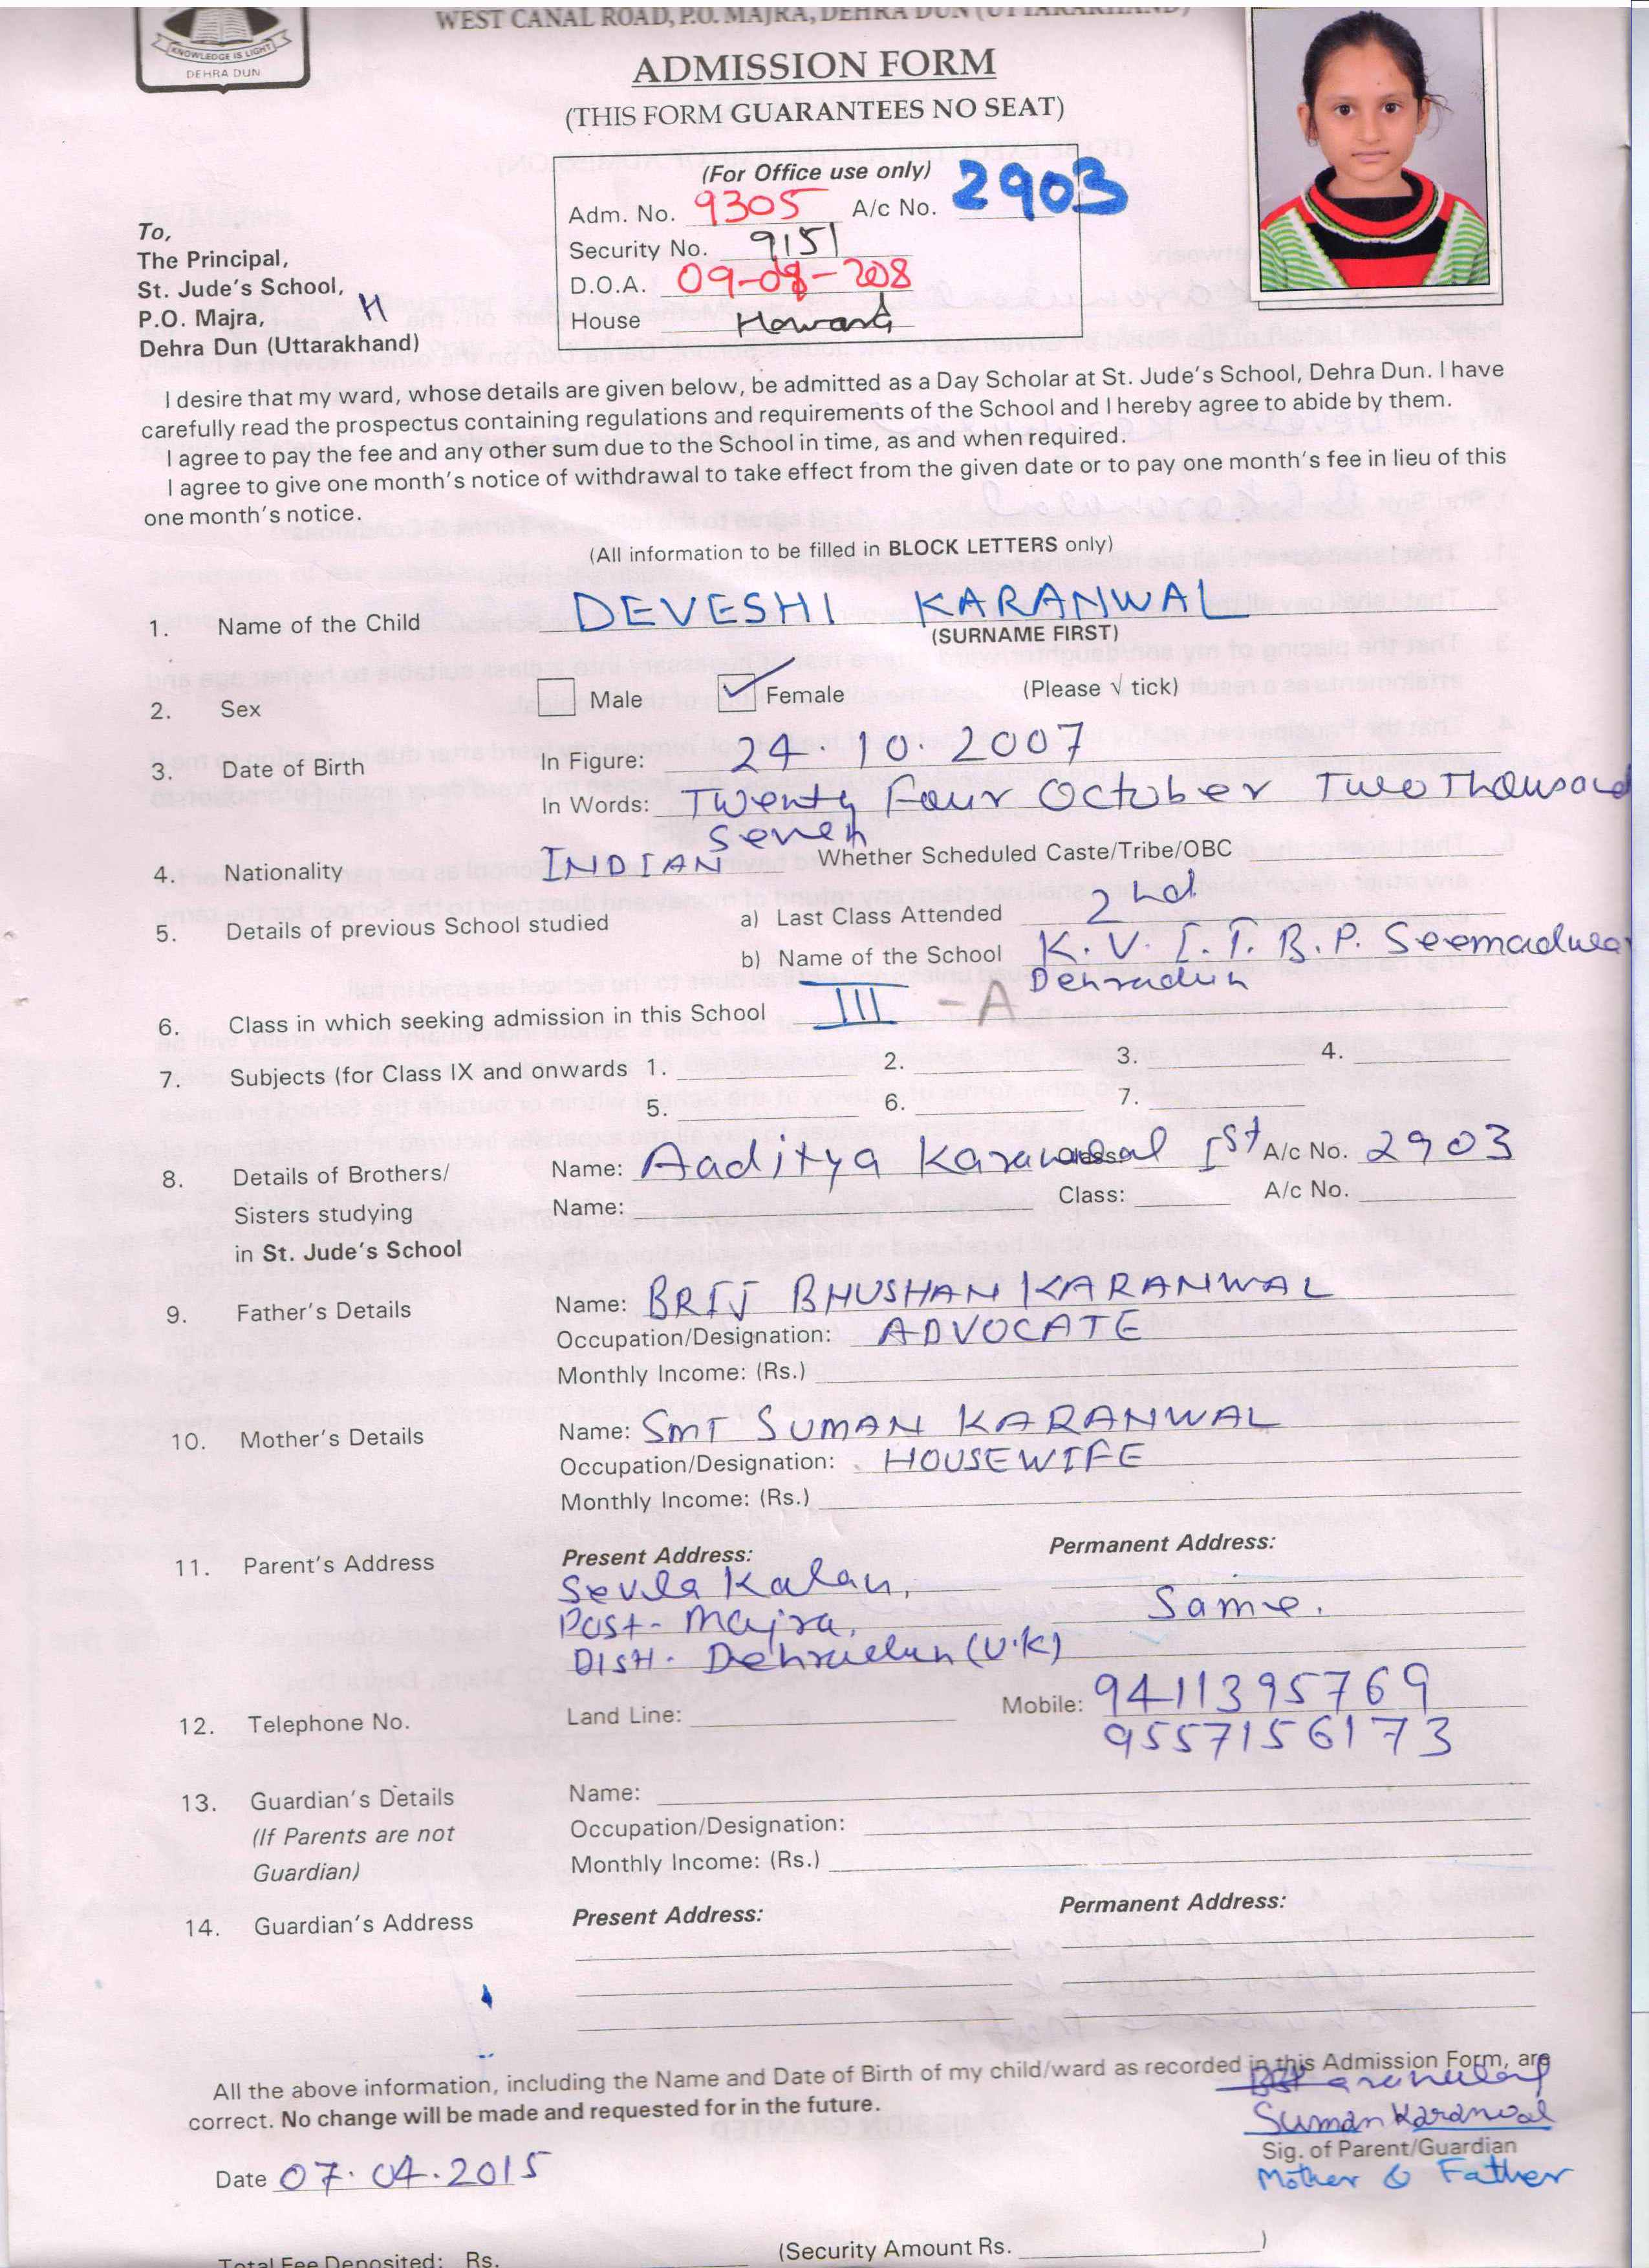 WEST CANAL ROAD, P.O. MAJRA, DEHRA DUN (UTTARAKHAND)
KNOWLEDGE IS LIGHT
DEHRA DUN
ADMISSION FORM
(THIS FORM GUARANTEES NO SEAT)
(For Office use only)
Adm. No. 9305 A/c No. 2903
Security No. 9151
D.O.A. 09-08-208
House Howard
To,
The Principal,
St. Jude's School,
H
P.O. Majra,
Dehra Dun (Uttarakhand)
I desire that my ward, whose details are given below, be admitted as a Day Scholar at St. Jude's School, Dehra Dun. I have
carefully read the prospectus containing regulations and requirements of the School and I hereby agree to abide by them.
I agree to pay the fee and any other sum due to the School in time, as and when required.
I agree to give one month's notice of withdrawal to take effect from the given date or to pay one month's fee in lieu of this
one month's notice.
(All information to be filled in BLOCK LETTERS only)
1. Name of the Child DEVESHI KARANWAL
(SURNAME FIRST)
2. Sex Male Female (Please √ tick)
3. Date of Birth In Figure: 24.10.2007
In Words: Twenty Four October Two Thousand
Seven
4. Nationality INDIAN Whether Scheduled Caste/Tribe/OBC
5. Details of previous School studied a) Last Class Attended 2nd
b) Name of the School K.V. I.T.B.P. Seemadwar
Dehradun
6. Class in which seeking admission in this School III - A
7. Subjects (for Class IX and onwards 1. 2. 3. 4.
5. 6. 7.
8. Details of Brothers/ Name: Aaditya Karanwal Class: Ist A/c No. 2903
Sisters studying Name: Class: A/c No.
in St. Jude's School
9. Father's Details Name: BRIJ BHUSHAN KARANWAL
Occupation/Designation: ADVOCATE
Monthly Income: (Rs.)
10. Mother's Details Name: SMT SUMAN KARANWAL
Occupation/Designation: HOUSEWIFE
Monthly Income: (Rs.)
11. Parent's Address Present Address: Permanent Address:
Sevla Kalan, Same.
Post- Majra,
Distt. Dehradun (U.K)
12. Telephone No. Land Line: Mobile: 9411395769
9557156173
13. Guardian's Details Name:
(If Parents are not Occupation/Designation:
Guardian) Monthly Income: (Rs.)
14. Guardian's Address Present Address: Permanent Address:
All the above information, including the Name and Date of Birth of my child/ward as recorded in this Admission Form, are
correct. No change will be made and requested for in the future.
Suman Karanwal
Sig. of Parent/Guardian
Mother & Father
Date 07.04.2015
Total Fee Deposited: Rs. (Security Amount Rs. )